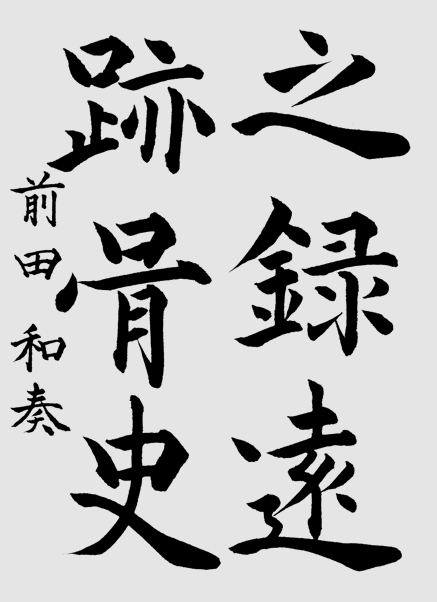 之録遠
跡骨史
前田和奏